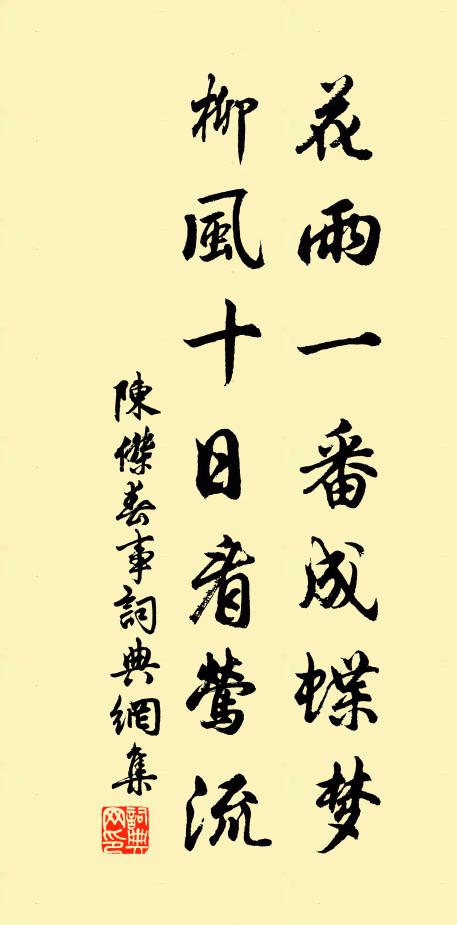 花雨一番成蝶梦
柳風十日看鶯流
陳傑春事詞典網集
詞典網印